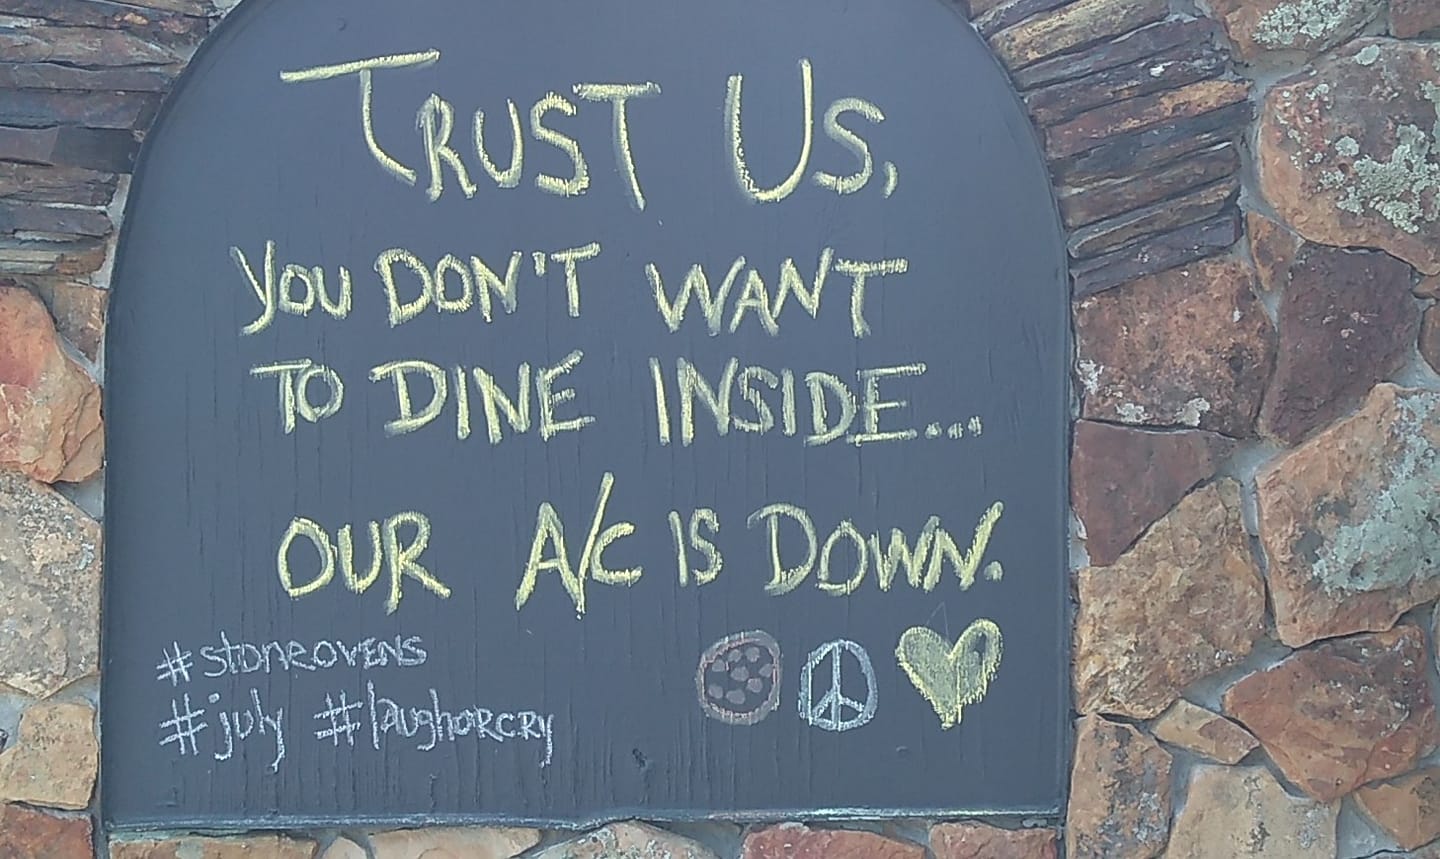 TRUST US,
YOU DON'T WANT
TO DINE INSIDE...
OUR A/C IS DOWN.
#stoneovens
#july #laughorcry